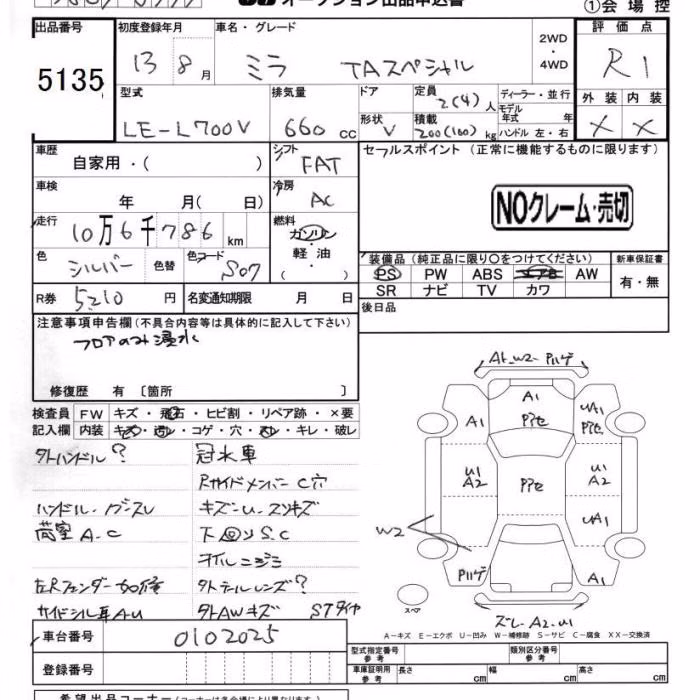 オークション出品申込書
①会場控
出品番号 5135
初度登録年月 13 8月
車名・グレード ミラ TAスペシャル
2WD・4WD
評価点 R1
外装 内装
× ×
型式 LE-L700V
排気量 660 cc
ドア
形状 V
定員 2(4)人
積載 200(100)kg
ディーラー・並行
モデル年式 年
ハンドル 左・右
車歴 自家用・( )
シフト FAT
セールスポイント(正常に機能するものに限ります)
NOクレーム・売切
車検 年 月( 日)
冷房 AC
走行 10万6千786km
燃料 ガソリン・軽油・( )
色 シルバー 色替 色コード S07
装備品(純正品に限り○をつけてください) 新車保証書
PS PW ABS エアB AW 有・無
SR ナビ TV カワ
R券 5210円
名変通知期限 月 日
後日品
注意事項申告欄(不具合内容等は具体的に記入して下さい)
フロアのみ浸水
修復歴 有 〔箇所 〕
検査員記入欄 FW キズ・飛石・ヒビ割・リペア跡・×要
内装 キズ・コゲ・穴・キレ・破レ
タトハンドル? 冠水車
Rサイドメンバー C穴
ハンドル. キズ-U-スリキズ
荷室 A.C 下回り S.C
オイルニジミ
左Rフェンダー 外テールレンズ?
サイドシル耳A-U 外AWキズ STタイヤ
A1-W2-P
A1 Pアセ
A1
UA1
Pアセ
U1 A2
Pアセ
U1 A2
UA1
W2
Pハゲ
A1
スペア
ズレ-A2-U1
A-キズ E-エクボ U-凹み W-補修跡 S-サビ C-腐食 XX-交換済
車台番号 0102025
登録番号
型式指定番号 参考
類別区分番号 参考
車庫証明用 参考 長さ cm 幅 cm 高さ cm
希望出品コーナー(コーナーは各会場により異なります)